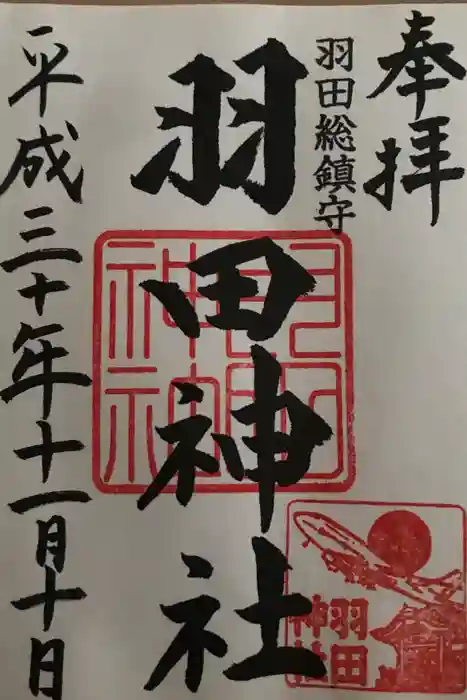 奉拝
羽田総鎮守
羽田神社
平成三十年十一月十日
羽田
神社
羽田
神社